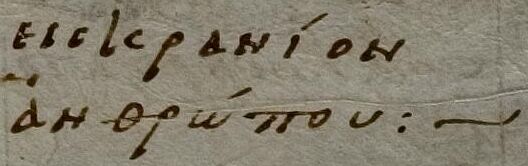 εισκρανίον
ἀνθρώπου:~